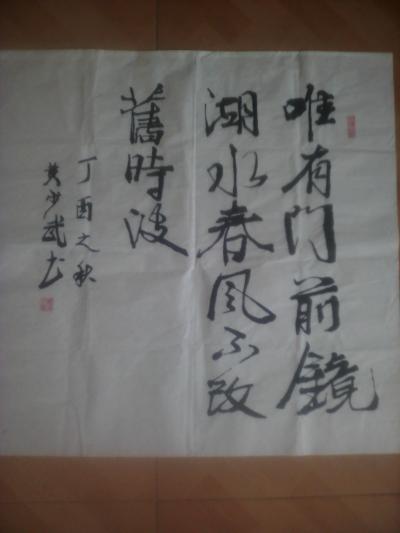 唯有门前鏡
湖水春风不改
舊時波
丁酉之秋
黄少武书